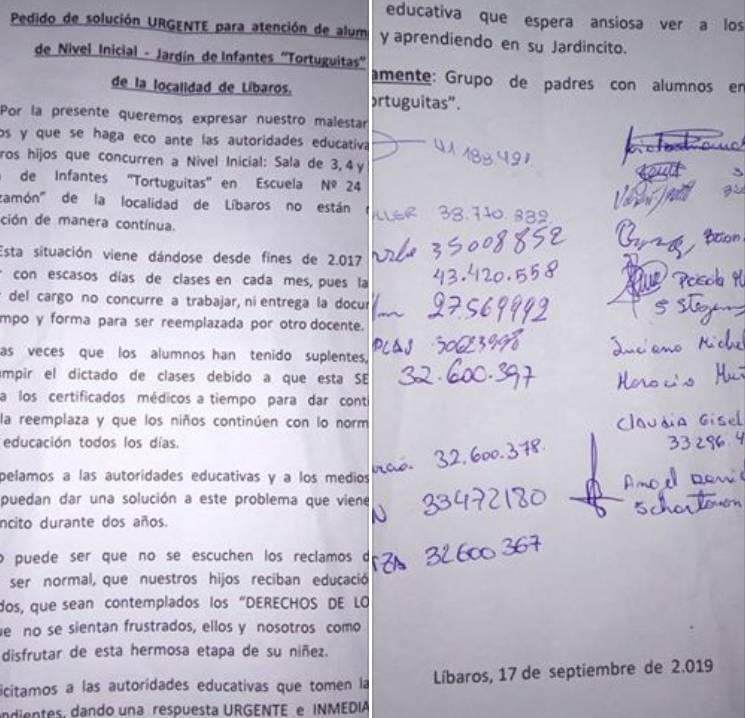 Pedido de solución URGENTE para atención de alum
de Nivel Inicial - Jardín de Infantes "Tortuguitas"
de la localidad de Líbaros.
Por la presente queremos expresar nuestro malestar
os y que se haga eco ante las autoridades educativa
ros hijos que concurren a Nivel Inicial: Sala de 3, 4 y
de Infantes "Tortuguitas" en Escuela Nº 24
zamón" de la localidad de Líbaros no están
ción de manera continua.
Esta situación viene dándose desde fines de 2.017
con escasos días de clases en cada mes, pues la
del cargo no concurre a trabajar, ni entrega la docu
mpo y forma para ser reemplazada por otro docente.
as veces que los alumnos han tenido suplentes,
umpir el dictado de clases debido a que esta SE
a los certificados médicos a tiempo para dar conti
la reemplaza y que los niños continúen con lo norm
educación todos los días.
pelamos a las autoridades educativas y a los medios
puedan dar una solución a este problema que viene
ncito durante dos años.
o puede ser que no se escuchen los reclamos d
ser normal, que nuestros hijos reciban educació
dos, que sean contemplados los "DERECHOS DE LO
ue no se sientan frustrados, ellos y nosotros como
disfrutar de esta hermosa etapa de su niñez.
icitamos a las autoridades educativas que tomen la
ndientes, dando una respuesta URGENTE e INMEDIA
educativa que espera ansiosa ver a los
y aprendiendo en su Jardincito.
amente: Grupo de padres con alumnos en
ortuguitas".
41 188 491
38.710.889
35008852
43.420.558
27.569992
30623998
Luciano Michel
32.600.397
Horacio
Claudia Gisel
33296.4
32.600.378
Angel
33472180
Schartonon
32600367
Líbaros, 17 de septiembre de 2.019